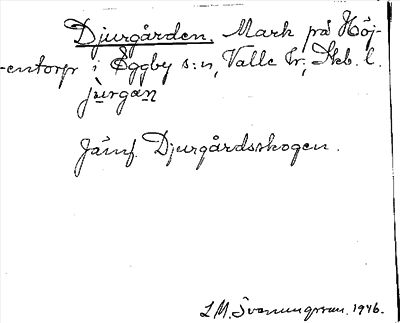 Djurgården. Mark på Höj-
-entorp i Eggby s:n, Valle hr; Skb. l.
jurgan
Jämf. Djurgårdsskogen.
L M. Svenungsson. 1946.